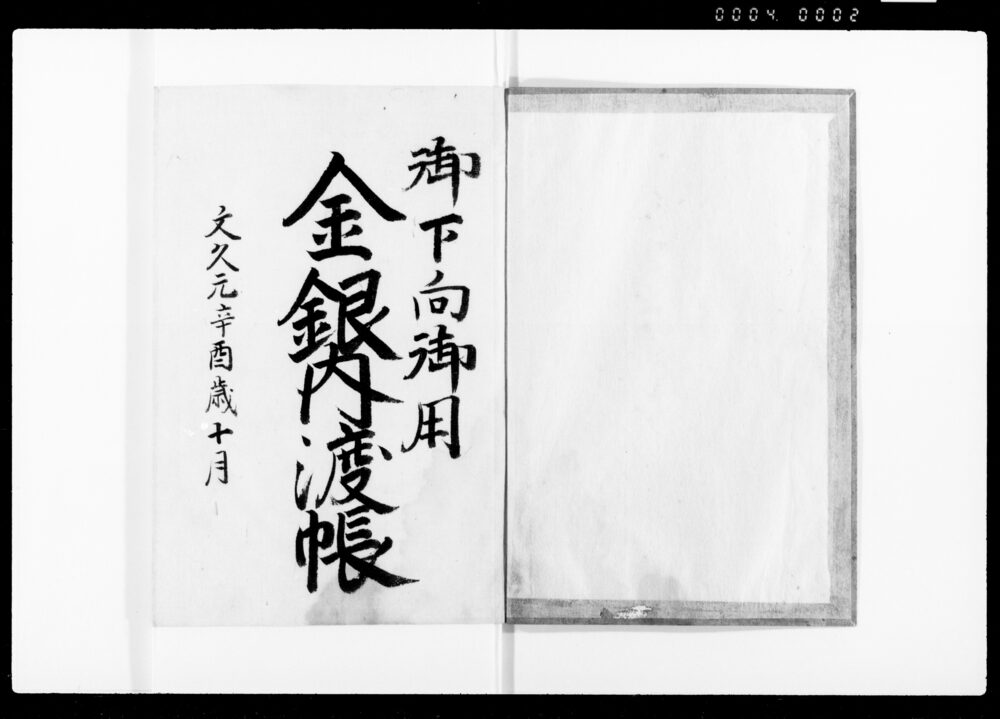 0004 0002
御下向御用
金銀内渡帳
文久元辛酉歳十月